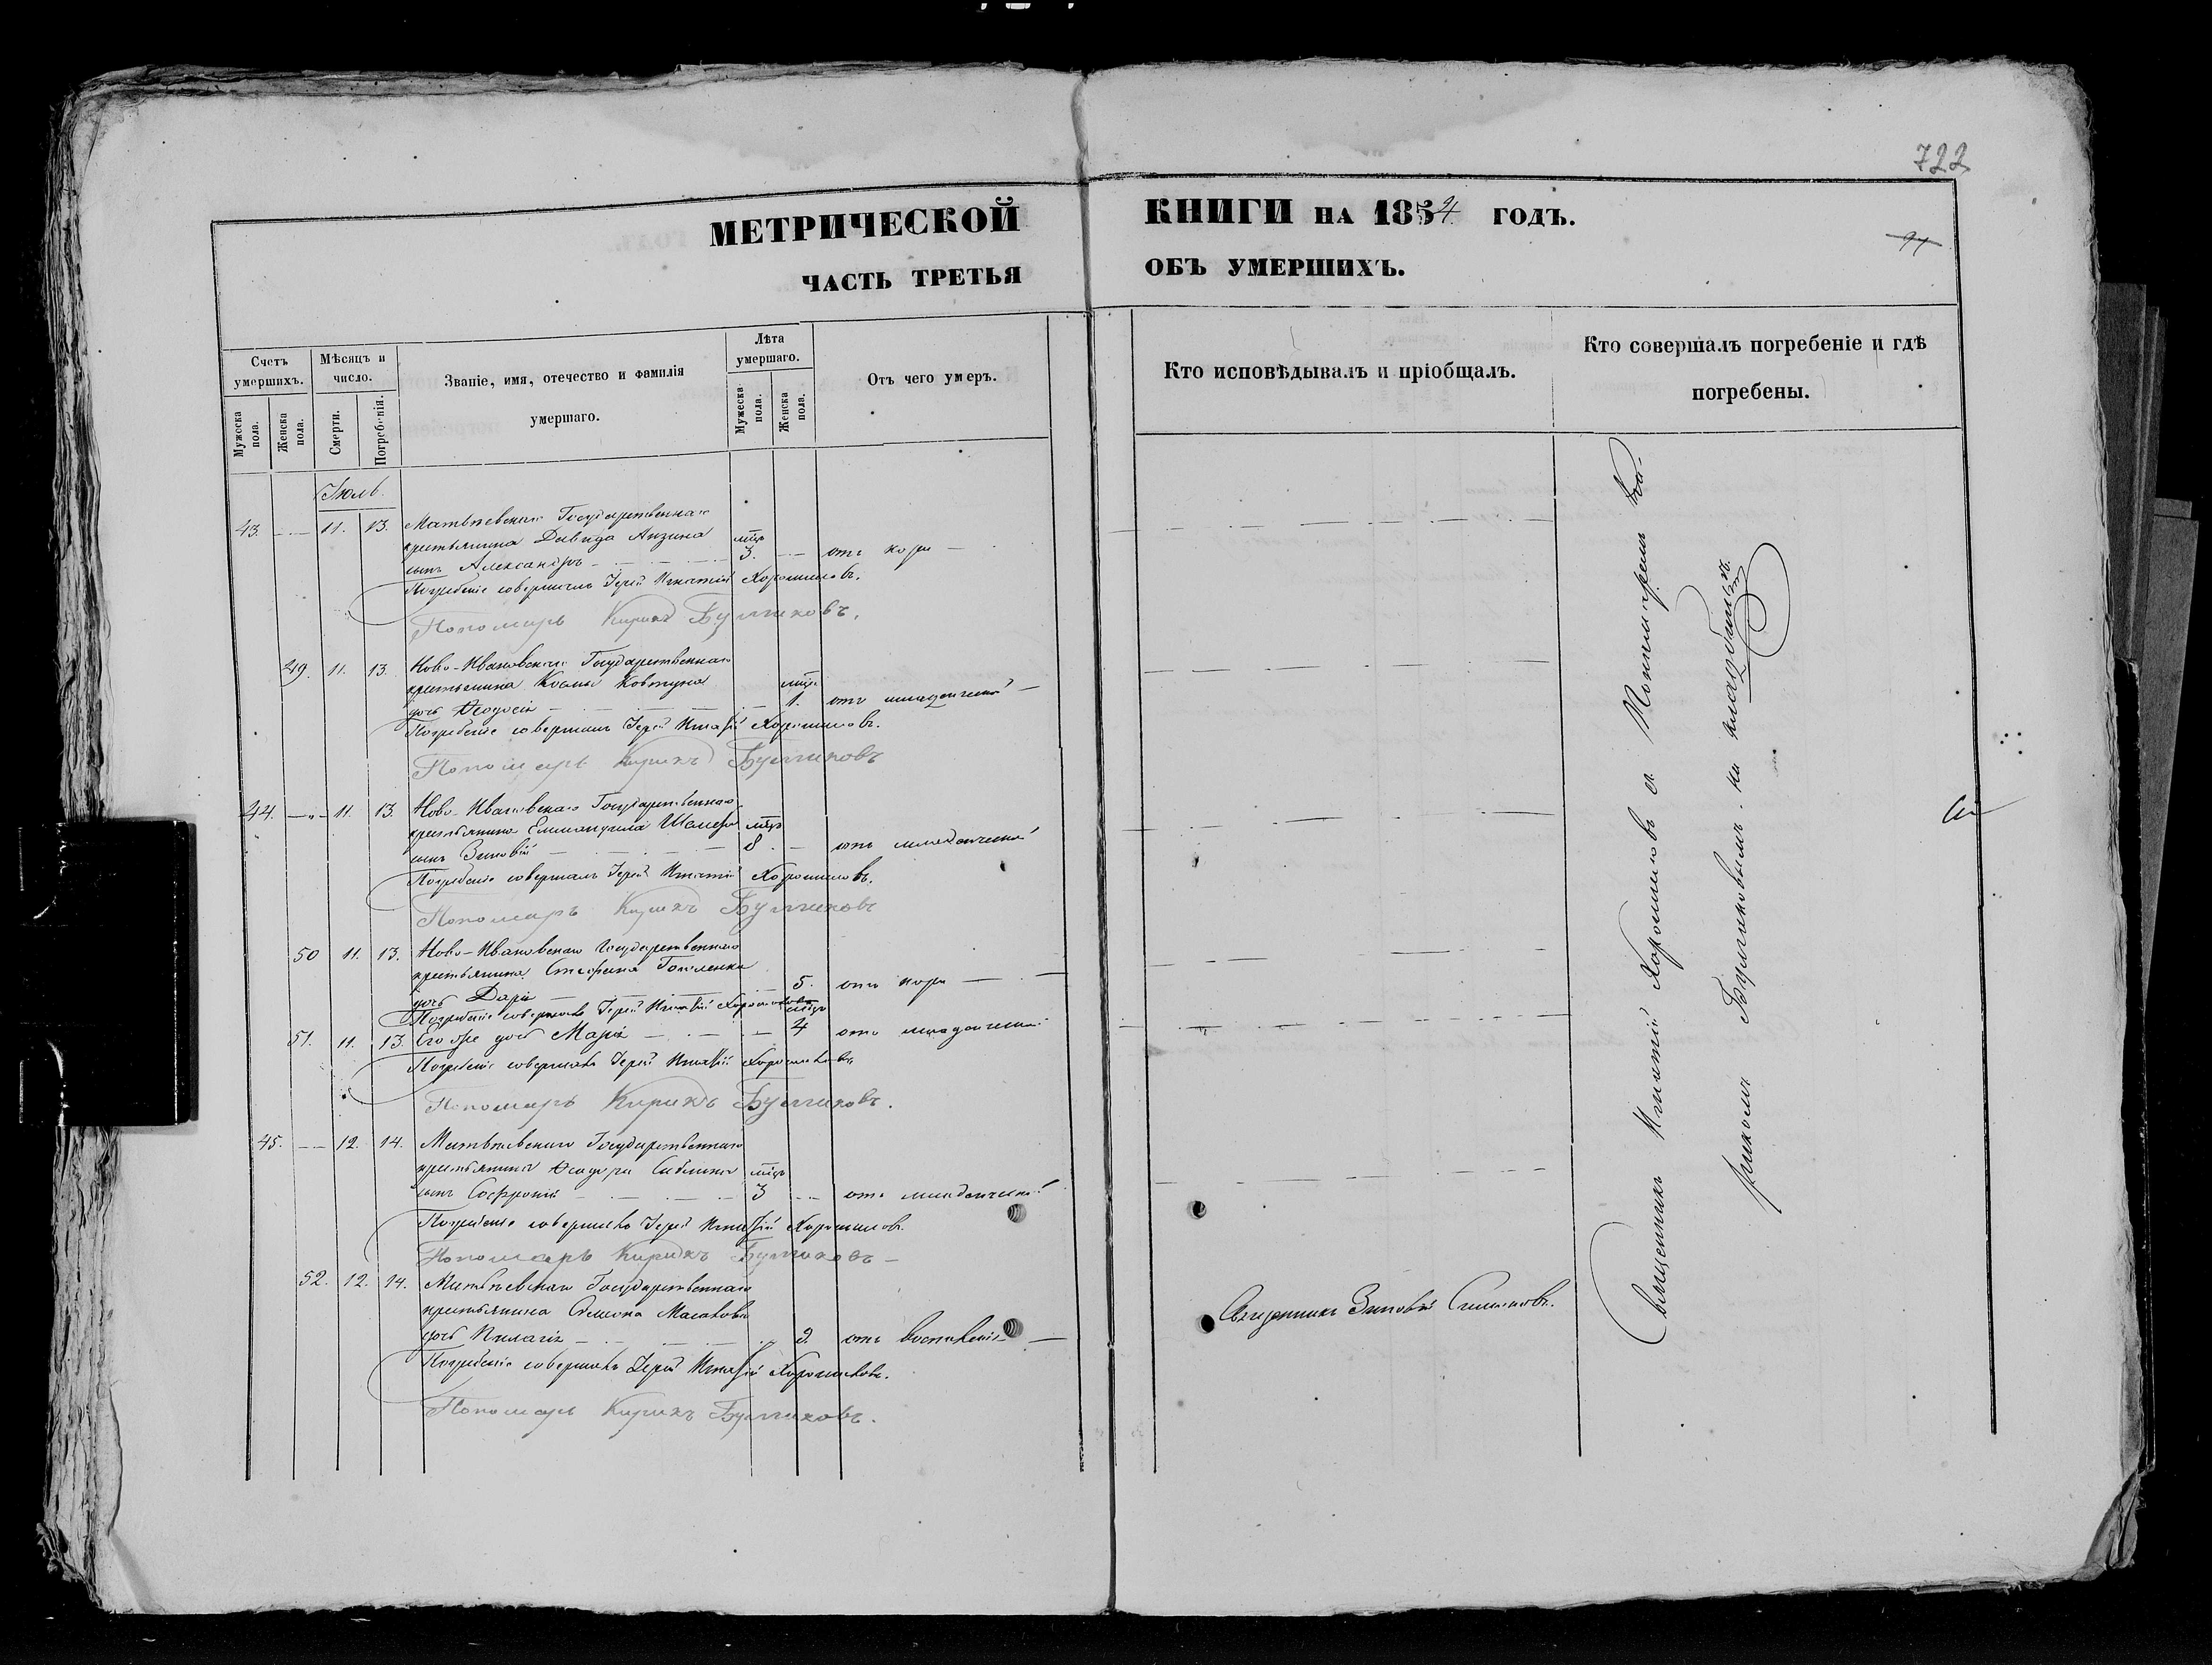 722
МЕТРИЧЕСКОЙ
КНИГИ НА 1854 ГОДЪ.
ЧАСТЬ ТРЕТЬЯ
ОБЪ УМЕРШИХЪ.
Счетъ умершихъ.
Мужеска пола.
Женска пола.
Мѣсяцъ и число.
Смерти.
Погребенія.
Званіе, имя, отечество и фамилія
умершаго.
Лѣта умершаго.
Мужеска пола.
Женска пола.
Отъ чего умеръ.
Кто исповѣдывалъ и пріобщалъ.
Кто совершалъ погребеніе и гдѣ
погребены.
Іюль.
43. 11. 13. Матвѣевскаго Государственнаго
крестьянина Давида Анзина мцъ
сынъ Александръ 3. отъ кори
Погребеніе совершалъ Іерей Игнатій Хорошиловъ.
Пономарь Кирикъ Булгиковъ.
49. 11. 13. Ново-Ивановскаго Государственнаго
крестьянина Космы Ковтуна мцъ
дочь Ѳеодосія 1. отъ младенческой
Погребеніе совершалъ Іерей Игнатій Хорошиловъ.
Пономарь Кирикъ Булгиковъ
44. 11. 13. Ново-Ивановскаго Государственнаго
крестьянина Еммануила мцъ
сынъ Зиновій 8 отъ младенческой
Погребеніе совершалъ Іерей Игнатій Хорошиловъ.
Пономарь Кирикъ Булгиковъ
50 11. 13. Ново-Ивановскаго Государственнаго
крестьянина Стефана
дочь Дарія 5. отъ кори
Погребеніе совершалъ Іерей Игнатій Хорошиловъ мцъ
51. 11. 13. Его же дочь Марія 4 отъ младенческой
Погребеніе совершалъ Іерей Игнатій Хорошиловъ
Пономарь Кирикъ Булгиковъ.
45. 12. 14. Матвѣевскаго Государственнаго
крестьянина Ѳеодора мцъ
сынъ Софроній 3 отъ младенческой
Погребеніе совершалъ Іерей Игнатій Хорошиловъ.
Пономарь Кирикъ Булгиковъ
52. 12. 14. Матвѣевскаго Государственнаго
крестьянина Симеона
дочь Пелагія 2. отъ воспаленія
Погребеніе совершалъ Іерей Игнатій Хорошиловъ.
Пономарь Кирикъ Булгиковъ.
Священникъ Зиновій
Священникъ Игнатій Хорошиловъ съ Пономаремъ Ки-
рикомъ Булгиковымъ. на кладбищѣ.